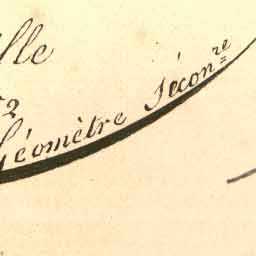 lle
52
Géomètre Sécon.re